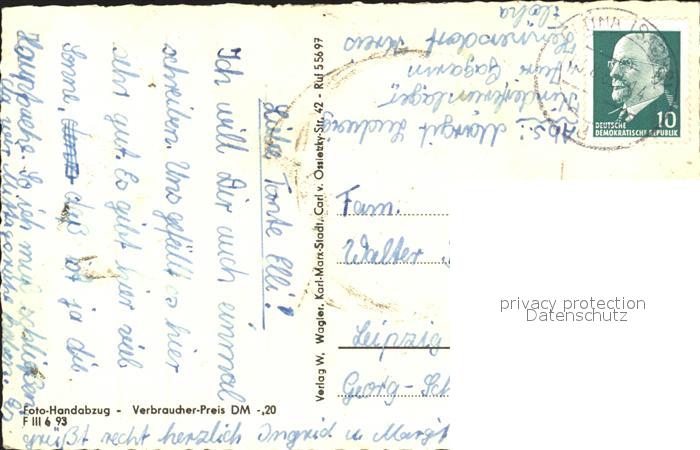 Liebe Tante Elli!
Ich will Dir auch einmal
schreiben. Uns gefällt es hier
sehr gut. Es gibt hier viel
Sonne, das ist ja die
Hauptsache. So ich muß schließen
grüßt recht herzlich Ingrid u Margit
Foto-Handabzug - Verbraucher-Preis DM -,20
F III 6 93
Verlag W. Wagler, Karl-Marx-Stadt, Carl v. Ossietzky-Str. 42 - Ruf 556 97
Abs.: Margit Ludwig
Kinderferienlager
Juri Gagarin
Hennersdorf Kreis
Flöha
DEUTSCHE
DEMOKRATISCHE REPUBLIK
10
Fam.
Walter
Leipzig
Georg-Sch
privacy protection
Datenschutz